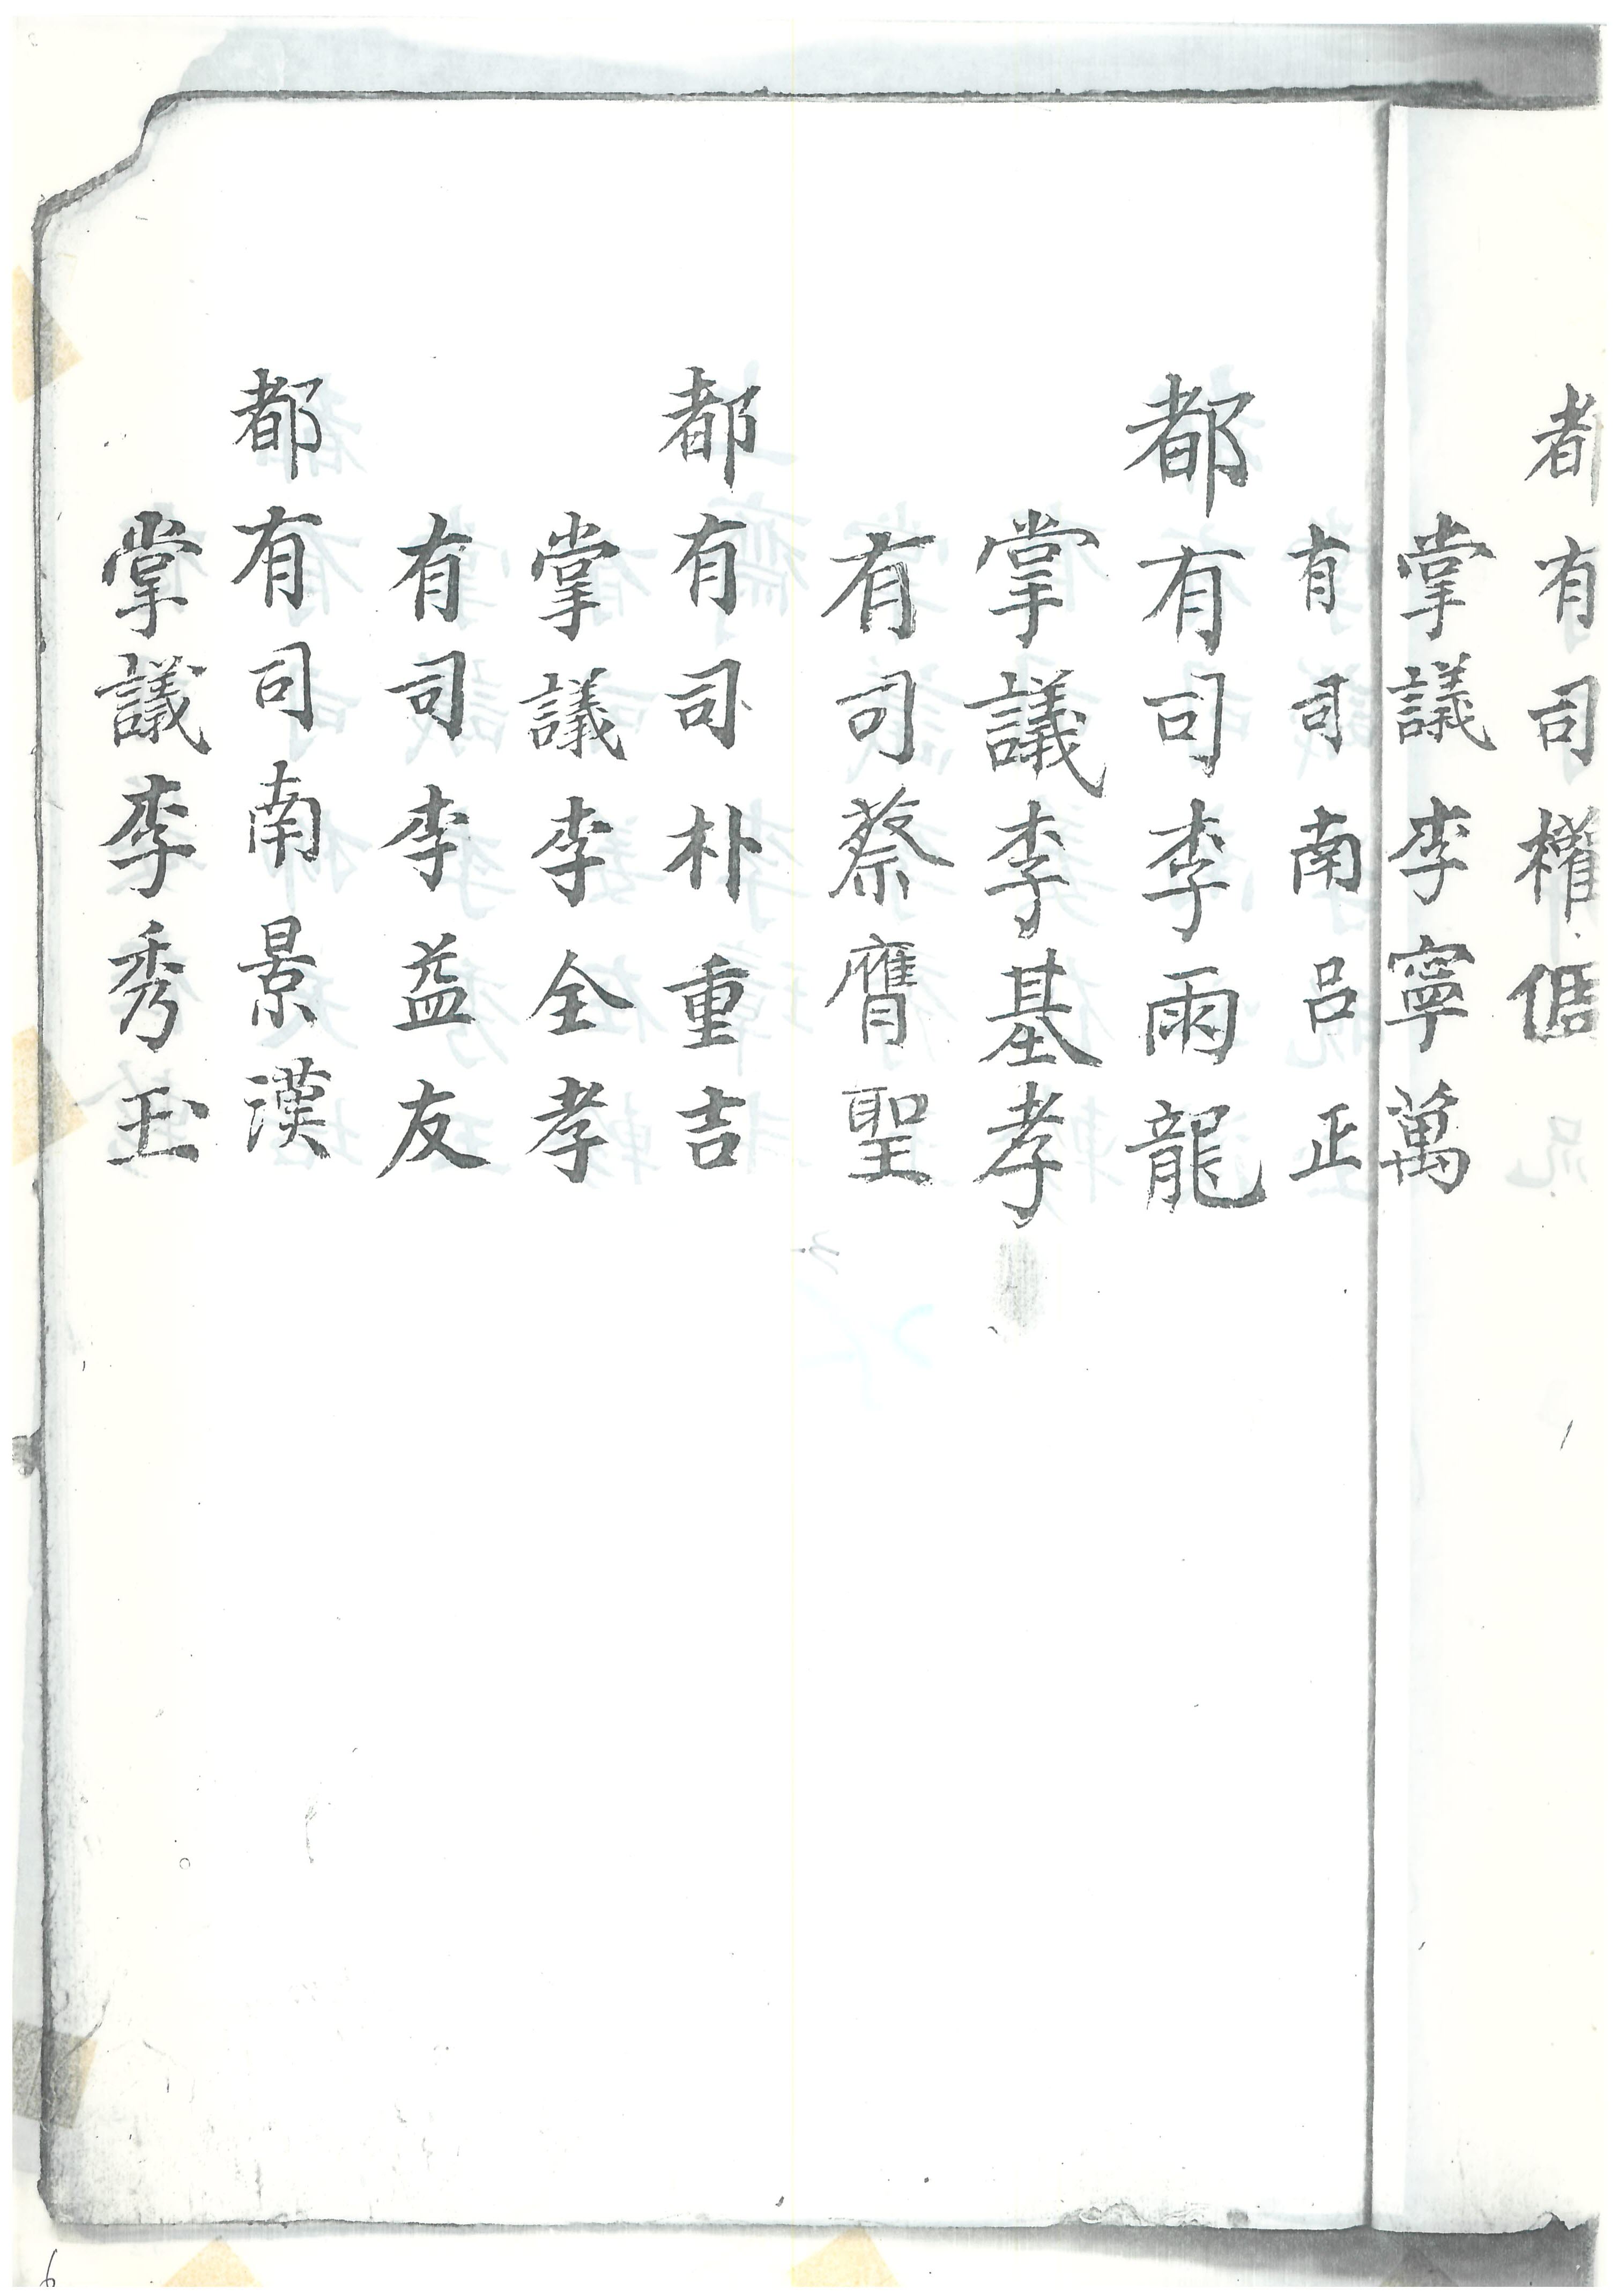 都有司權
掌議李寧萬
有司南呂正
都有司李雨龍
掌議李基孝
有司蔡膺聖
都有司朴重吉
掌議李全孝
有司李益友
都有司南景漢
掌議李秀玉